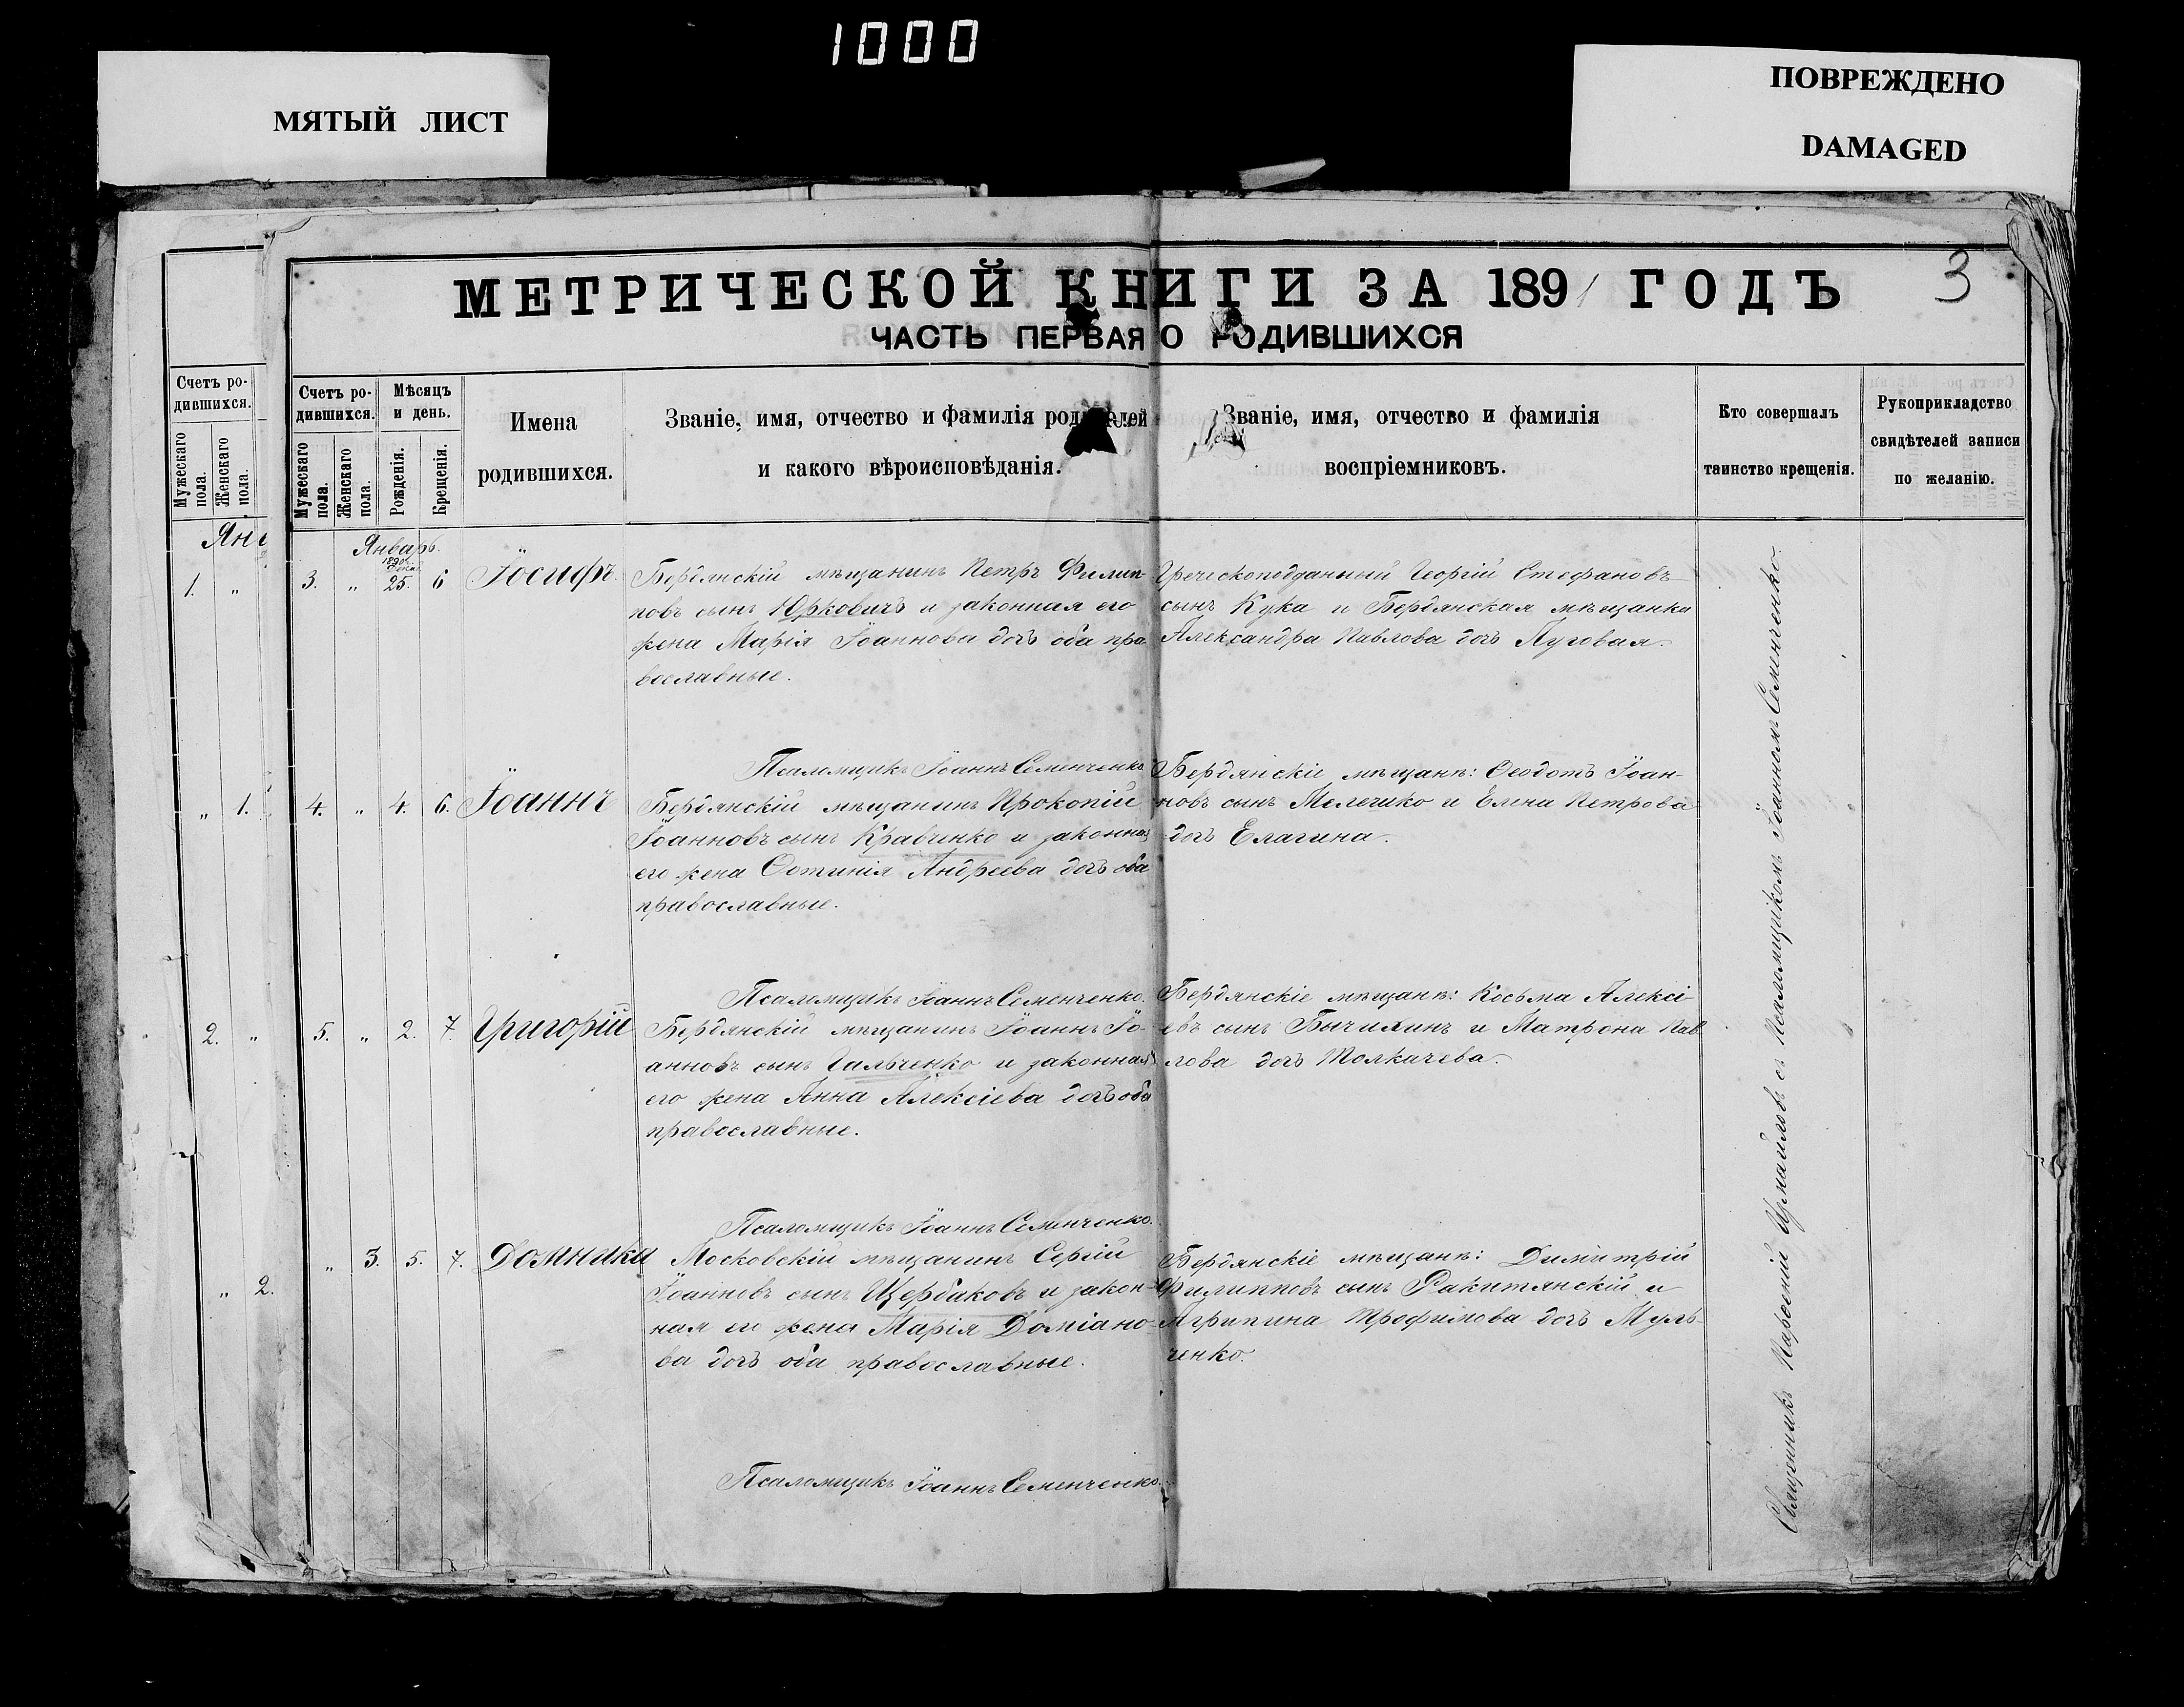 1000
МЯТЫЙ ЛИСТ
ПОВРЕЖДЕНО
DAMAGED
3
МЕТРИЧЕСКОЙ КНИГИ ЗА 1891 ГОДЪ
ЧАСТЬ ПЕРВАЯ О РОДИВШИХСЯ
Счетъ ро-
дившихся.
Мужескаго пола.
Женскаго пола.
Янв
1. "
" 1.
2. "
" 2.
Счетъ ро-
дившихся.
Мужескаго пола.
Женскаго пола.
Мѣсяцъ
и день.
Рожденія.
Крещенія.
Имена
родившихся.
Званіе, имя, отчество и фамилія родителей
и какого вѣроисповѣданія.
Званіе, имя, отчество и фамилія
воспріемниковъ.
Кто совершалъ
таинство крещенія.
Рукоприкладство
свидѣтелей записи
по желанію.
Январь.
1890
3. " 25. 6 Іосифъ.
Бердянскій мѣщанинъ Петръ Филип-
повъ сынъ Юрковичъ и законная его
жена Марія Іоаннова дочь оба пра-
вославные.
Греческоподданный Георгій Стефановъ
сынъ Кука и Бердянская мѣщанка
Александра Павлова дочь Пуговая.
Псаломщикъ Іоаннъ Семенченко.
4. " 4. 6. Іоаннъ
Бердянскій мѣщанинъ Прокопій
Іоанновъ сынъ Кравченко и законная
его жена Фотинія Андреева дочь оба
православные.
Бердянскіе мѣщане: Ѳеодотъ Іоан-
новъ сынъ Мелечко и Елена Петрова
дочь Елагина.
Псаломщикъ Іоаннъ Семенченко.
5. " 2. 7. Григорій
Бердянскій мѣщанинъ Іоаннъ Іо-
анновъ сынъ Гальченко и законная
его жена Анна Алексіева дочь оба
православные.
Бердянскіе мѣщане: Косьма Алексі-
евъ сынъ Бычихинъ и Матрона Пав-
лова дочь Толкачева.
Псаломщикъ Іоаннъ Семенченко.
" 3. 5. 7. Домника
Московскій мѣщанинъ Сергій
Іоанновъ сынъ Щербаковъ и закон-
ная его жена Марія Доміано-
ва дочь оба православные.
Бердянскіе мѣщане: Димитрій
Филипповъ сынъ Ракитянскій и
Агрипина Трофимова дочь Муль-
ченко.
Псаломщикъ Іоаннъ Семенченко.
Священникъ съ Псаломщикомъ Іоанномъ Семенченко.